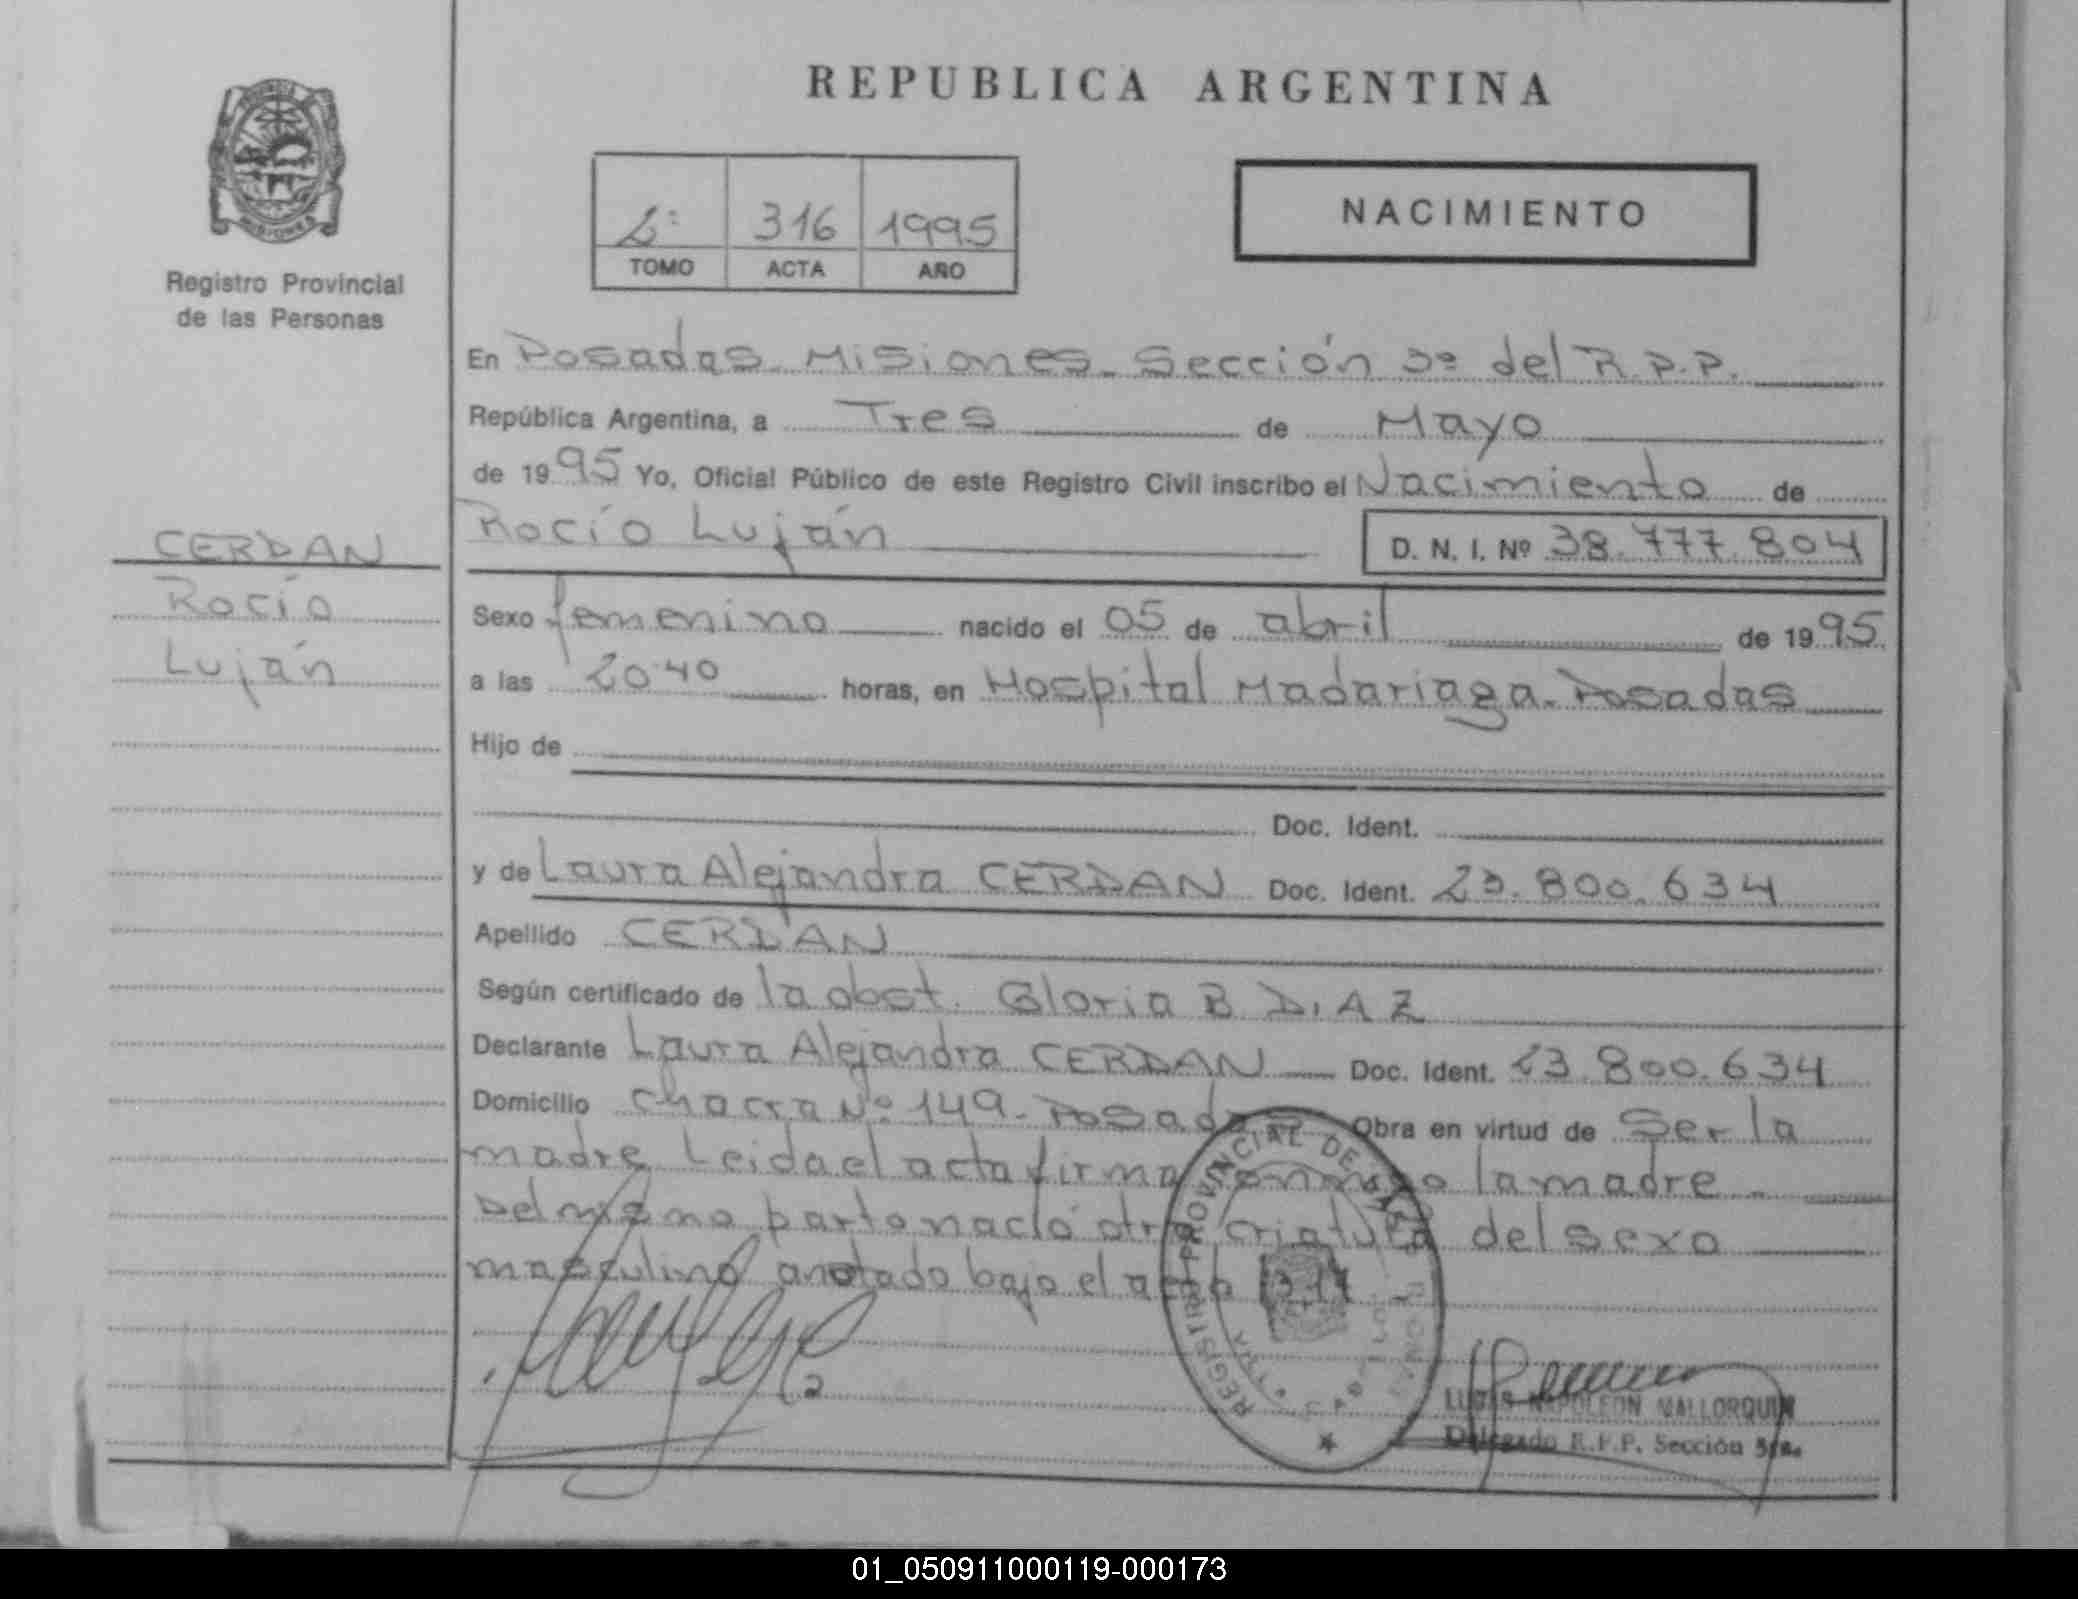 REPUBLICA ARGENTINA
2º 316 1995
TOMO ACTA AÑO
NACIMIENTO
MISIONES
Registro Provincial
de las Personas
CERDAN
Rocío
Luján
En Posadas. Misiones. Sección 3ª del R.P.P.
República Argentina, a Tres de Mayo
de 1995 Yo, Oficial Público de este Registro Civil inscribo el Nacimiento de
Rocío Luján D. N. I. Nº 38.777.804
Sexo femenino nacido el 05 de abril de 1995.
a las 20.40 horas, en Hospital Madariaga. Posadas
Hijo de
Doc. Ident.
y de Laura Alejandra CERDAN Doc. Ident. 23.800.634
Apellido CERDAN
Según certificado de la obst. Gloria B DIAZ
Declarante Laura Alejandra CERDAN Doc. Ident. 23.800.634
Domicilio Chacra Nº 149. Posadas Obra en virtud de Ser la
madre Leida el acta firma conmigo la madre
Del mismo parto nació otra criatura del sexo
masculino anotado bajo el acta 317
REGISTRO PROVINCIAL DE LAS
LUCAS NAPOLEON MALLORQUIN
Delegado R.P.P. Sección 3ra.
01_050911000119-000173